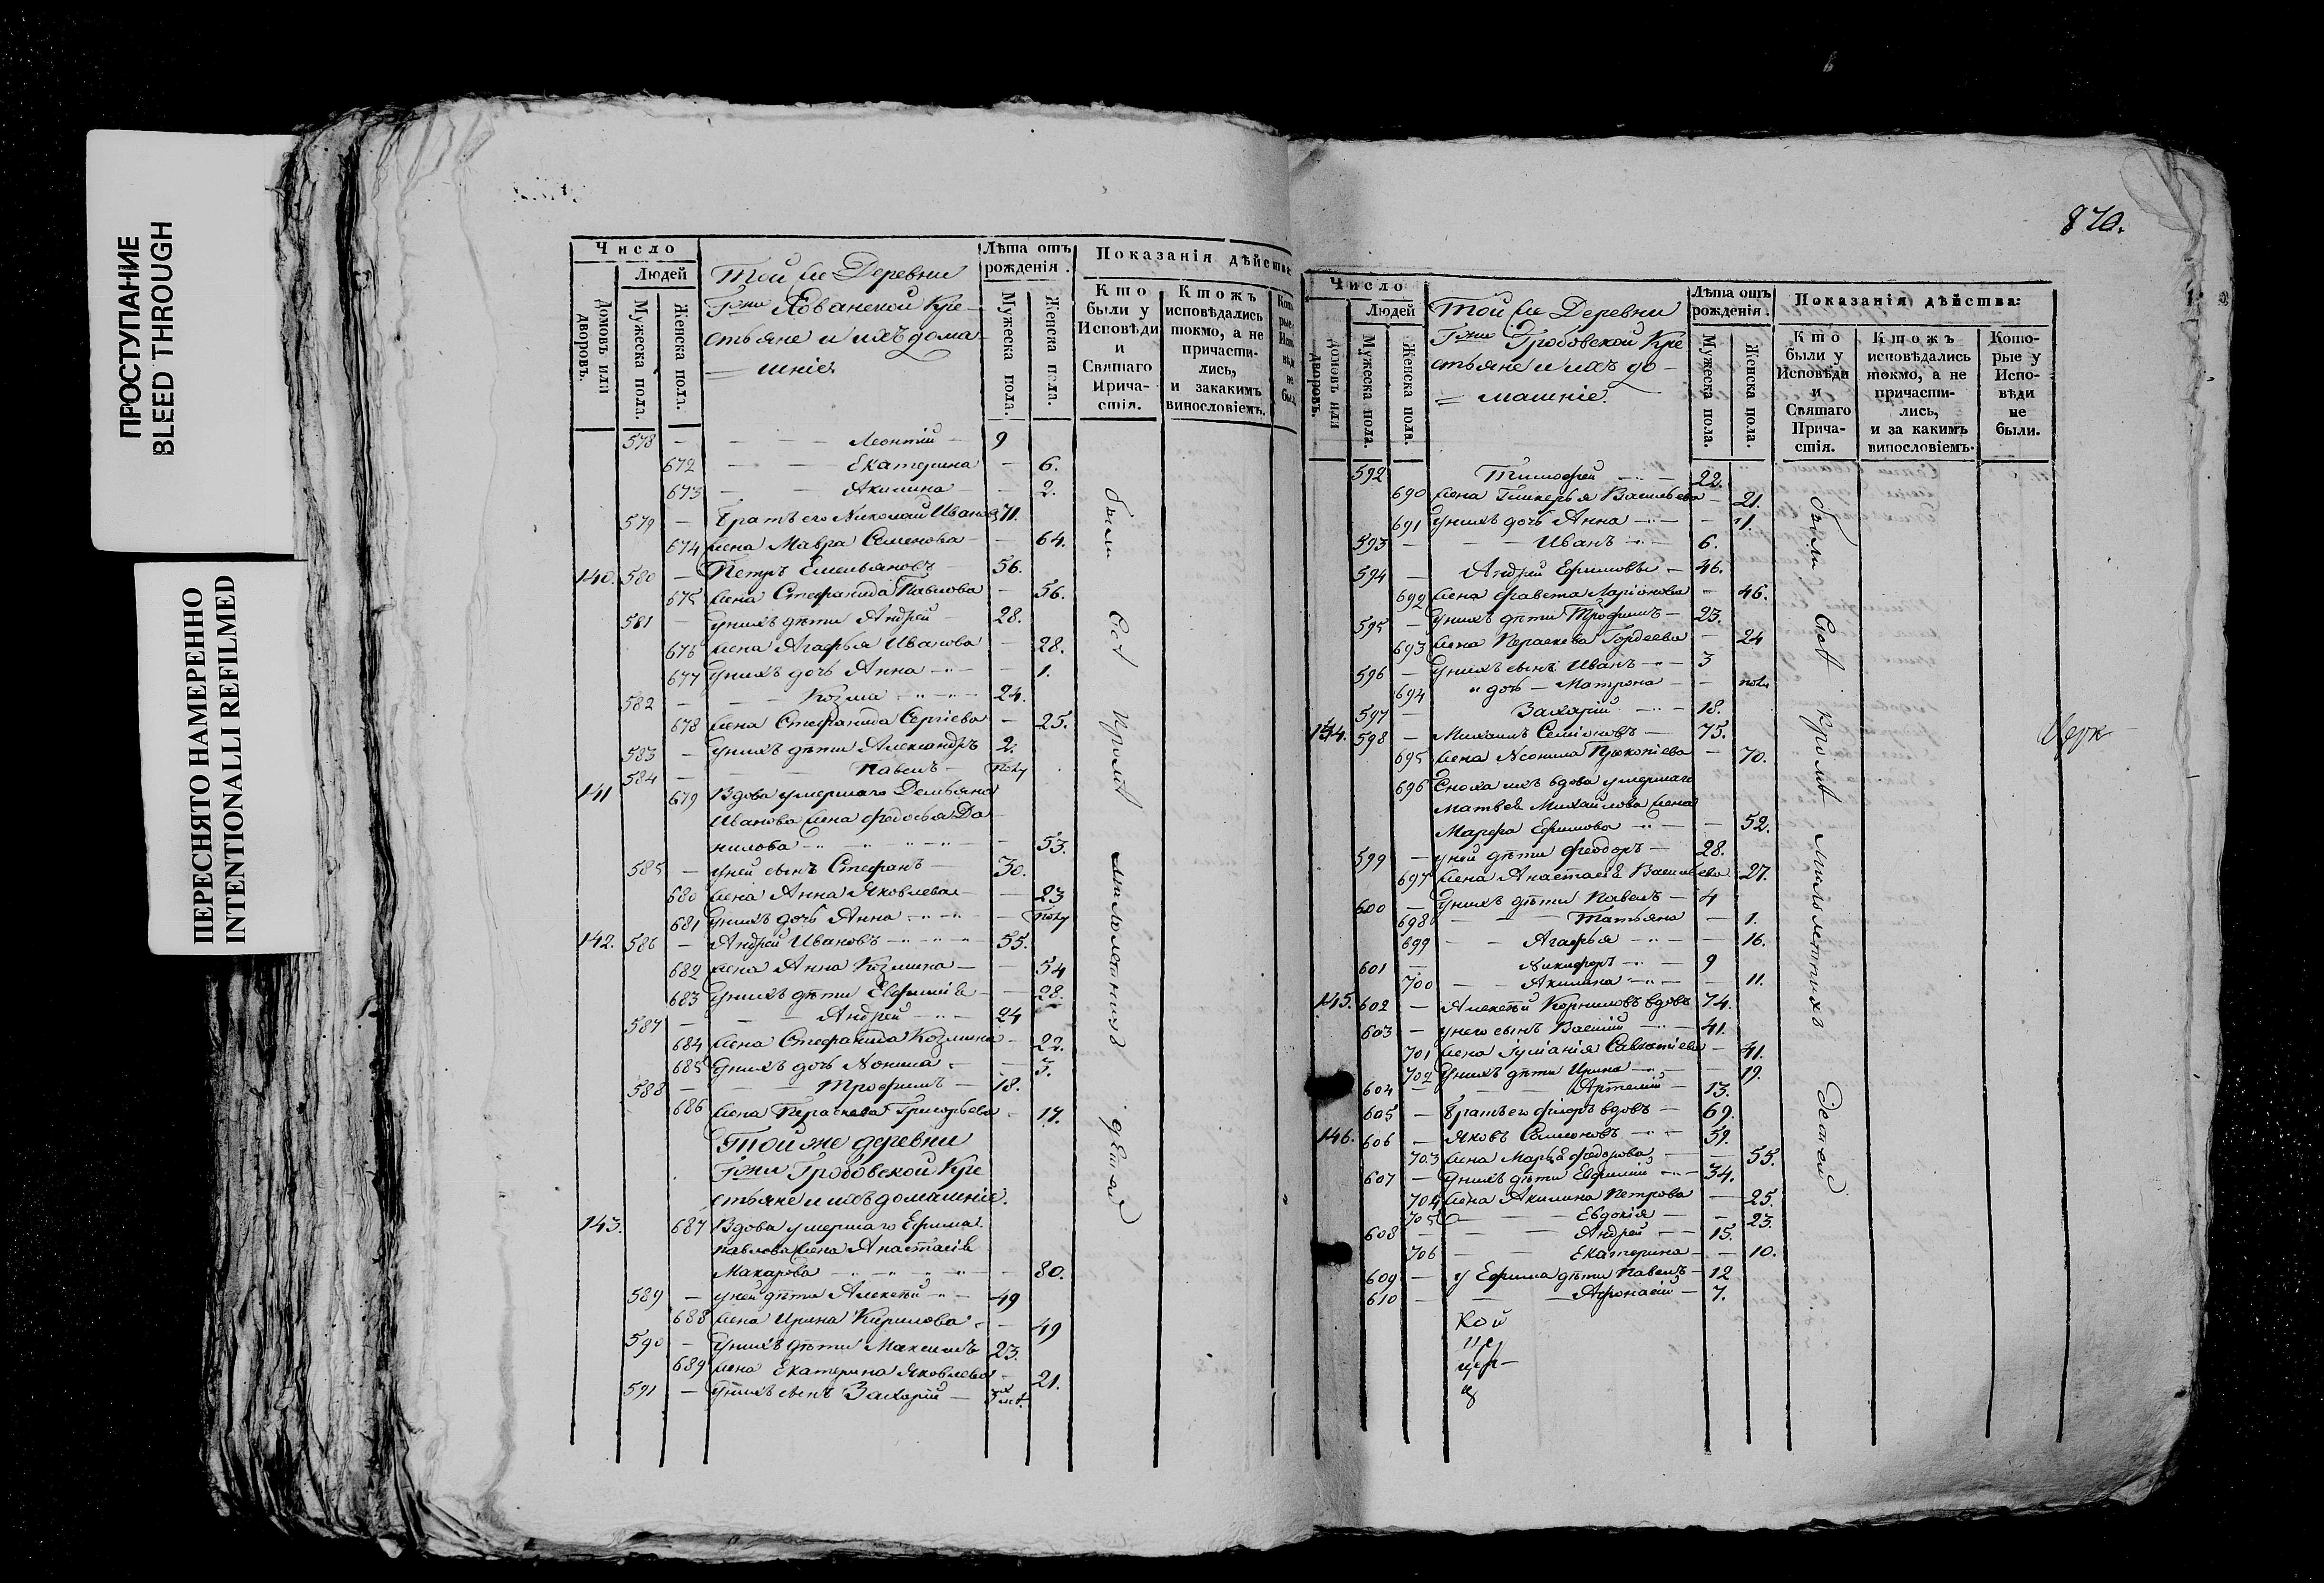 ПРОСТУПАНИЕ
BLEED THROUGH
ПЕРЕСНЯТО НАМЕРЕННО
INTENTIONALLI REFILMED
Число
Людей
Домовъ или дворовъ.
Мужеска пола.
Женска пола.
Той же Деревни
Гжи Хованской Кре-
стьяне и ихъ дома-
шніе
Лѣта отъ рожденія.
Мужеска пола.
Женска пола.
Показанія дѣйства
Кто были у Исповѣди и Святаго Прича-стія.
Ктожъ исповѣдались токмо, а не причасти-лись, и закакимъ винословіемъ.
578 — Леонтій — 9
672 — Екатерина — 6.
673 — Акилина — 2.
579 — братъ его Николай Ивановъ 71.
674 жена Мавра Семенова — 64.
140. 580 — Петръ Емельяновъ — 56.
675 жена Стефанида Павлова — 56.
581 — у нихъ дѣти Андрей — 28.
676 жена Агафья Иванова — 28.
677 у нихъ дочь Анна — 1.
582 — Козма — 24.
678 жена Стефанида Сергіева — 25.
583 — у нихъ дѣти Александръ 2.
584 — Павелъ — полу
141 679 Вдова умершаго Демьяна
Иванова жена Федосья Да-
нилова — 53.
585 — у ней сынъ Стефанъ — 30.
680 жена Анна Яковлева — 23
681 у нихъ дочь Анна — полу
142. 586 — Андрей Ивановъ — 55.
682 жена Анна Козмина — 54
683 у нихъ дѣти Евфимія — 28.
587 — Андрей — 24
684 жена Стефанида Козмина — 22.
685 у нихъ дочь — 3.
588 — Трофимъ — 18.
686 жена Параскева Григорьева — 17.
Той же деревни
Гжи Гробовской Кре
стьяне и ихъ домашніе.
143. 687 Вдова умершаго Ефима
Павлова жена Анастасія
Макарова — 80.
589 — у ней дѣти Алексѣй — 49
688 жена Ирина Кирилова — 49
590 — у нихъ дѣти Максимъ 23.
689 жена Екатерина Яковлева — 21.
591 — у нихъ сынъ Захарій —
были Всѣ кромѣ малолѣтнихъ дѣтей
870.
Число
Людей
Домовъ или дворовъ.
Мужеска пола.
Женска пола.
Той же Деревни
Гжи Гробовской Кре
стьяне и ихъ до-
машніе.
Лѣта отъ рожденія.
Мужеска пола.
Женска пола.
Показанія дѣйства:
Кто были у Исповѣди и Святаго Прича-стія.
Ктожъ исповѣдались токмо, а не причасти-лись, и за какимъ винословіемъ.
Кото-рые у Испо-вѣди не были.
592 Тимофей — 22.
690 жена Гликерья Васильева — 21.
691 у нихъ дочь Анна — 1.
593 — Иванъ — 6.
594 — Андрей Ефимовъ — 46.
692 жена Ларіонова — 46.
595 — у нихъ дѣти Трофимъ — 23.
693 жена Параскева Гордеева — 24
596 — у нихъ сынъ Иванъ — 3
694 " дочь — Матрона — полу
597 — Захарій — 18.
144. 598 — Михаилъ Семіоновъ — 75.
695 жена Неонила Прокопіева — 70.
696 Сноха ихъ вдова умершаго
Матвея Михайлова жена
Марфа Ефимова — 52.
599 — у ней дѣти Феодоръ — 28.
697 жена Анастасія Васильева 27.
600 — у нихъ дѣти Павелъ — 4
698 — Татьяна — 1.
699 — Агафья — 16.
601 — Никифоръ — 9
700 — Акилина — 11.
145. 602 — Алексѣй Корниловъ вдовъ 74.
603 — у него сынъ Василій — 41.
701 жена Іуліанія Савватіева — 41.
702 у нихъ дѣти Ирина — 19.
604 — Артемій — 13.
605 — братъ его вдовъ — 69.
146. 606 — Яковъ Самсоновъ — 59.
703 жена Марья Федорова — 55.
607 — у нихъ дѣти Евфимій — 34.
704 жена Акилина Петрова — 25.
705 — Евдокія — 23.
608 — Андрей — 15.
706 — Екатерина — 10.
609 — у Ефима дѣти Павелъ — 12
610 — Афонасій — 7.
были Всѣ кромѣ малолѣтнихъ дѣтей